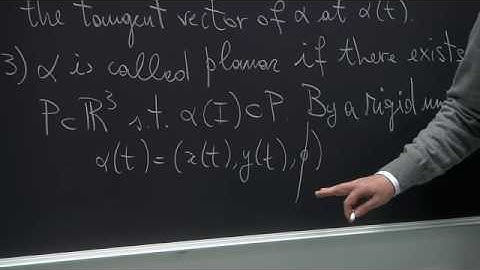 the tangent vector of α at α(t).
3) α is called planar if there exists
P⊂ℝ³ s.t. α(I)⊂P. By a rigid
α(t)=(x(t),y(t),ϕ)